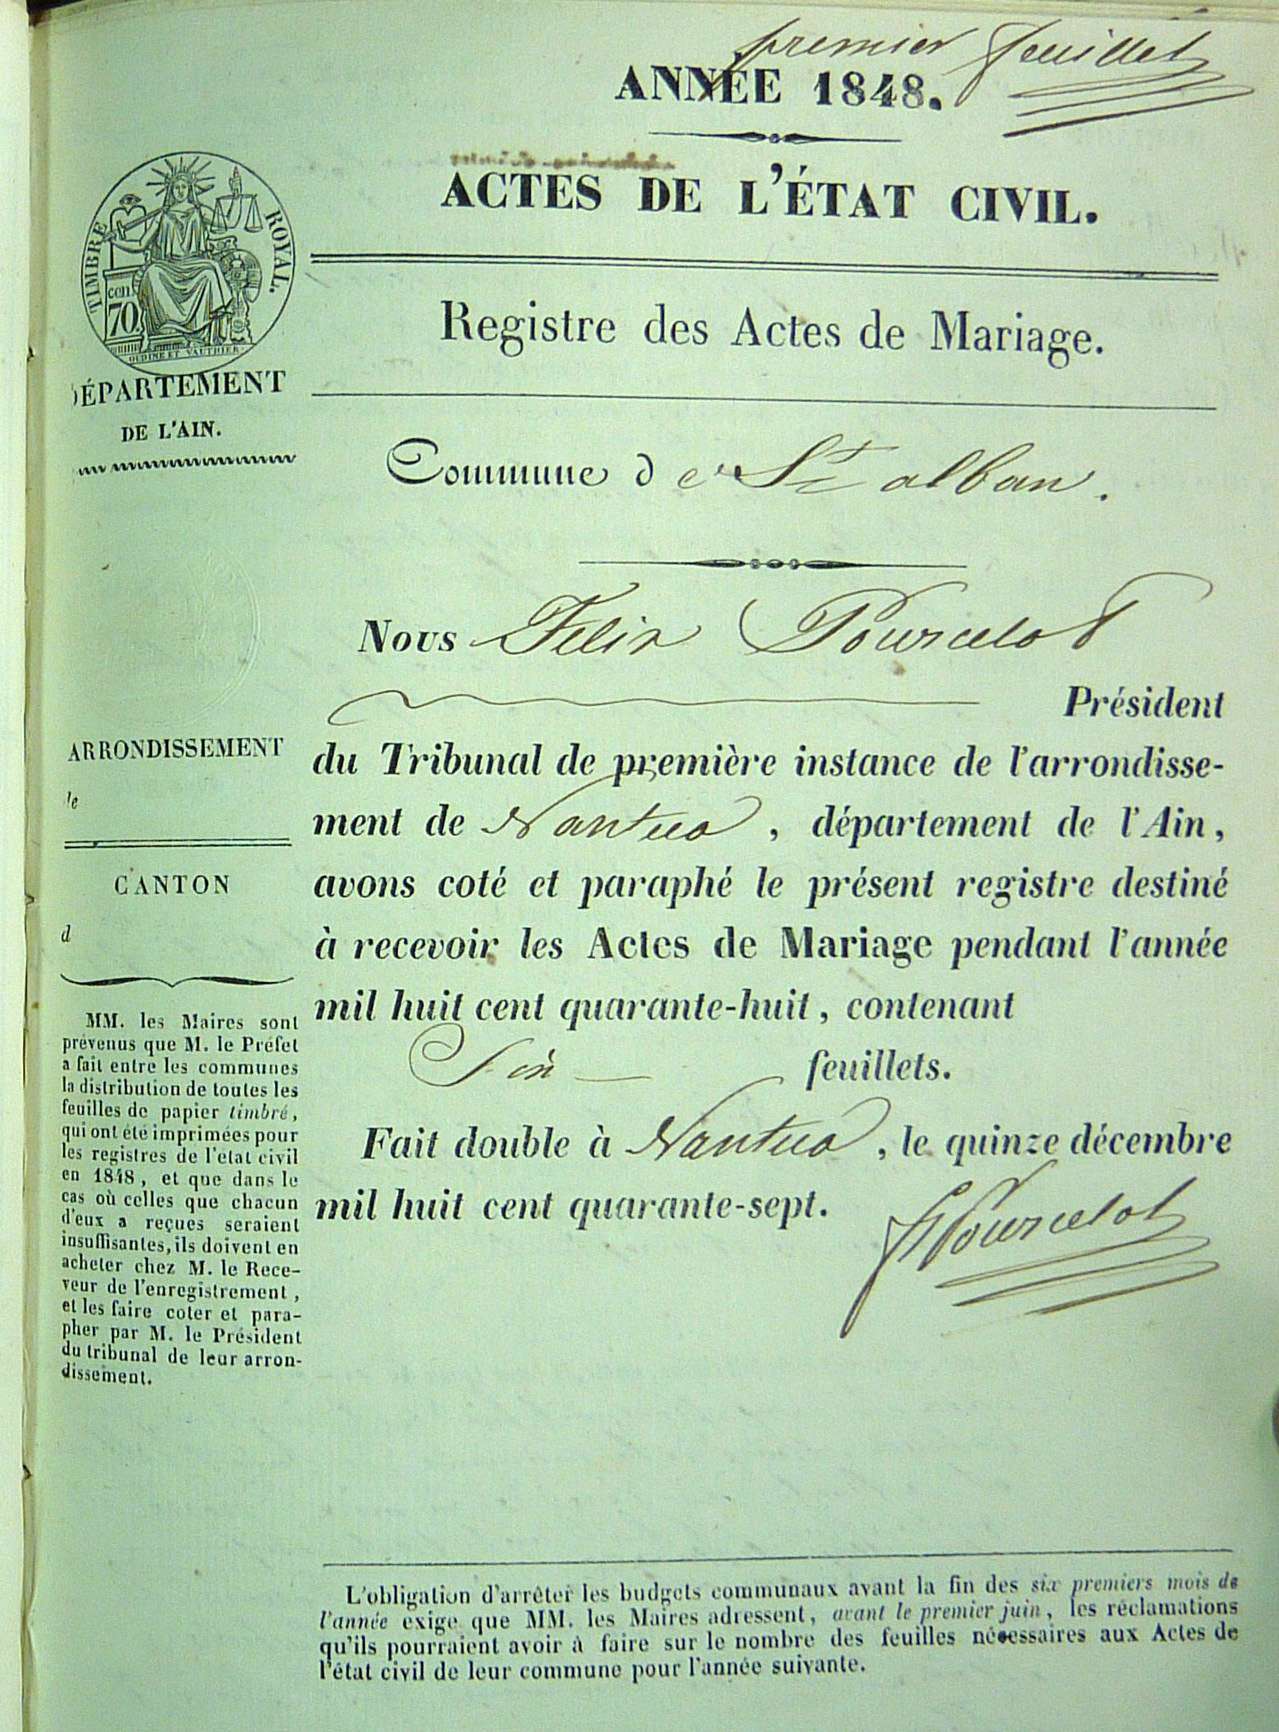 premier feuillet
ANNÉE 1848.
ACTES DE L'ÉTAT CIVIL.
TIMBRE ROYAL.
cen.
70
OUDINE ET VAUTHIER
Registre des Actes de Mariage.
DÉPARTEMENT
DE L'AIN.
Commune de St alban.
Nous Felix Pourcelot
Président
du Tribunal de première instance de l'arrondisse-
ment de Nantua, département de l'Ain,
avons coté et paraphé le présent registre destiné
à recevoir les Actes de Mariage pendant l'année
mil huit cent quarante-huit, contenant
feuillets.
Fait double à Nantua, le quinze décembre
mil huit cent quarante-sept.
Pourcelot
ARRONDISSEMENT
de
CANTON
d
MM. les Maires sont
prévenus que M. le Préfet
a fait entre les communes
la distribution de toutes les
feuilles de papier timbré,
qui ont été imprimées pour
les registres de l'état civil
en 1848, et que dans le
cas où celles que chacun
d'eux a reçues seraient
insuffisantes, ils doivent en
acheter chez M. le Rece-
veur de l'enregistrement,
et les faire coter et para-
pher par M. le Président
du tribunal de leur arron-
dissement.
L'obligation d'arrêter les budgets communaux avant la fin des six premiers mois de
l'année exige que MM. les Maires adressent, avant le premier juin, les réclamations
qu'ils pourraient avoir à faire sur le nombre des feuilles nécessaires aux Actes de
l'état civil de leur commune pour l'année suivante.